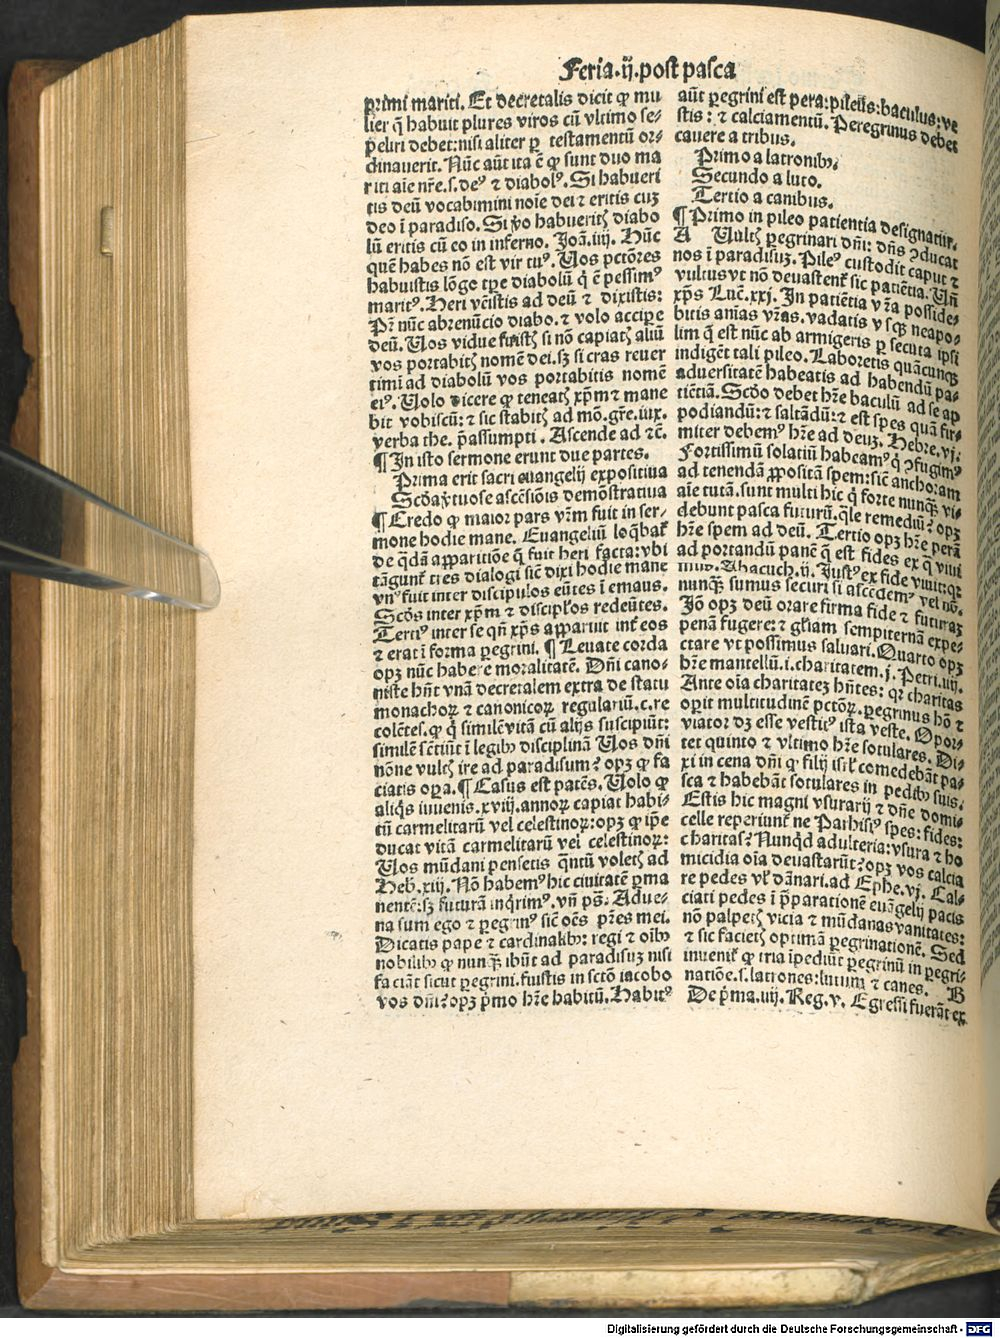 Feria.ij.post pasca
primi mariti. Et decretalis dicit ꝙ mu
lier q̃ habuit plures viros cũ vltimo se⸗
peliri debet:nisi aliter ꝑ testamentũ or⸗
dinauerit. Nũc aũt ita ẽ ꝙ sunt duo ma
riti aĩe nr̃e.s.deꝰ ⁊ diabolꝰ. Si habueri
tis deũ vocabimini noĩe dei ⁊ eritis cuȝ
deo ĩ paradiso. Si v̾o habueritꝭ diabo
lũ eritis cũ eo in inferno. Joã.iiij. Hũc
quẽ habes nõ est vir tuꝰ. Uos pctõres
habuistis lõge tꝑe diabolũ q̇ ẽ pessimꝰ
maritꝰ. Heri vẽistis ad deũ ⁊ dixistis:
Pr̃ nũc abrenũcio diabo.⁊ volo accipe
deũ. Uos vidue fuistꝭ si nõ capiatꝭ aliũ
vos portabitꝭ nomẽ dei.sȝ si cras reuer
timĩ ad diabolũ vos portabitis nomẽ
eiꝰ. Uolo dicere ꝙ teneatꝭ xp̃m ⁊ mane
bit vobiscũ:⁊ sic stabitꝭ ad mõ.gr̃e.iux.
verba the. p̃assumpti. Ascende ad ⁊c̃.
¶ In isto sermone erunt due partes.
Prima erit sacri euangelij expositiua
Scd̃a v̾tuose ascẽsiõis demõstratiua
¶ Credo ꝙ maior pars vr̃m fuit in ser⸗
mone hodie mane. Euangeliũ loq̃bat᷑
de q̃dã apparitiõe q̃ fuit heri facta:vbi
tãgunt᷑ tres dialogi sic̃ dixi hodie mane
vnꝰ fuit inter discipulos eũtes ĩ emaus.
Scd̃s inter xp̃m ⁊ discipl̃os redeũtes.
Tertiꝰ inter se qñ xp̃s apparuit int̾ eos
⁊ erat ĩ forma ꝑegrini. ¶ Leuate corda
opȝ nũc habere moralitatẽ. Dñi cano⸗
niste hñt vnã decretalem extra de statu
monachoꝝ ⁊ canonicoꝝ regulariũ.c.re
colẽtes.ꝙ q̇ similẽ vitã cũ alijs suscipiũt:
similẽ sẽtiũt ĩ legibꝰ disciplinã Uos dñi
nõne vultꝭ ire ad paradisum? opȝ ꝙ fa
ciatis oꝑa. ¶ Casus est patẽs. Uolo ꝙ
aliq̇s iuuenis.xviij.annoꝝ capiat habi⸗
tũ carmelitarũ vel celestinoꝝ:opȝ ꝙ ip̃e
ducat vitã carmelitarũ vel celestinoꝝ:
Uos mũdani pensetis q̃ntũ voletꝭ ad
Heb̾.xiij. Nõ habemꝰ hic ciuitatẽ ꝑma
nentẽ:sȝ futurã inq̇rimꝰ. vñ ps̃. Adue⸗
na sum ego ⁊ ꝑegrinꝰ sic̃ oẽs pr̃es mei.
Dicatis pape ⁊ cardinalibꝰ: regi ⁊ oĩbꝰ
nobilibꝰ ꝙ nunꝗ̃ ibũt ad paradisuȝ nisi
faciãt sicut ꝑegrini.fuistis in sctõ iacobo
vos dñi? opȝ p̾mo hr̃e habitũ. Habitꝰ
aũt ꝑegrini est pera:pileus:baculus:ve
stis: ⁊ calciamentũ. Peregrinus debet
cauere a tribus.
Primo a latronibꝰ.
Secundo a luto.
Tertio a canibus.
¶ Primo in pileo patientia designatur.
A Uultꝭ ꝑegrinari dñi: dñs ꝯducat
nos ĩ paradisuȝ. Pileꝰ custodit caput ⁊
vultus vt nõ deuastent᷑ sic patiẽtia. Uñ
xp̃s Luc̃.xxj. In patiẽtia vr̃a posside⸗
bitis aĩas vr̃as. vadatis vsqȝ neapo⸗
lim q̃ est nũc ab armigeris ꝑsecuta ipsi
indigẽt tali pileo. Laboretis quãcunqȝ
aduersitatẽ habeatis ad habendũ pa⸗
tiẽtiã. Scd̃o debet hr̃e baculũ ad se ap
podiandũ:⁊ saltãdũ:⁊ est spes quã fir⸗
miter debemꝰ hr̃e ad deuȝ. Hebre.vj.
Fortissimũ solatiũ habeamꝰ q̇ ꝯfugimꝰ
ad tenendã ꝓpositã spem:sic̃ anchoram
aĩe tutã.sunt multi hic q̇ forte nunꝗ̃ vi⸗
debunt pasca futurũ.q̃le remediũ? opȝ
hr̃e spem ad deũ. Tertio opȝ hr̃e perã
ad portandũ panẽ q̃ est fides ex q̃ viui
mus. Abacuch.ij. Justꝰ ex fide viuit:qꝛ
nunꝗ̃ sumus securi si ascẽdemꝰ vel nõ.
Jõ opȝ deũ orare firma fide ⁊ futuraȝ
penã fugere:⁊ gl̃iam sempiternã expe⸗
ctare vt possimus saluari. Quarto opȝ
hr̃e mantellũ.i.charitatem.j. Petri.iiij.
Ante oĩa charitateȝ hñtes: qꝛ charitas
oꝑit multitudinẽ pctõꝝ. ꝑegrinus hõ ⁊
viator dȝ esse vestitꝰ ista veste. Opor⸗
tet quinto ⁊ vltimo hr̃e sotulares. Di⸗
xi in cena dñi ꝙ filij isrl̃ comedebãt pa⸗
sca ⁊ habebãt sotulares in pedibꝰ suis.
Estis hic magni vsurarij ⁊ dñe domi⸗
celle reperiunt᷑ ne Parhisiꝰ spes:fides:
charitas? Nunq̇d adulteria:vsura ⁊ ho
micidia oĩa deuastarũt? opȝ vos calcia
re pedes vl̾ dãnari.ad Ephe.vj. Cal⸗
ciati pedes ĩ p̃parationẽ euãgelij pacis
nõ palpetꝭ vicia ⁊ mũdanas vanitates:
⁊ sic facietꝭ optimã ꝑegrinationẽ. Sed
inuenit᷑ ꝙ tria ĩpediũt ꝑegrinũ in ꝑegri⸗
natiõe.s.latrones:lutum ⁊ canes. B
De p̾ma.iiij. Reg.v. Egressi fuerãt ex
Digitalisierung gefördert durch die Deutsche Forschungsgemeinschaft - DFG